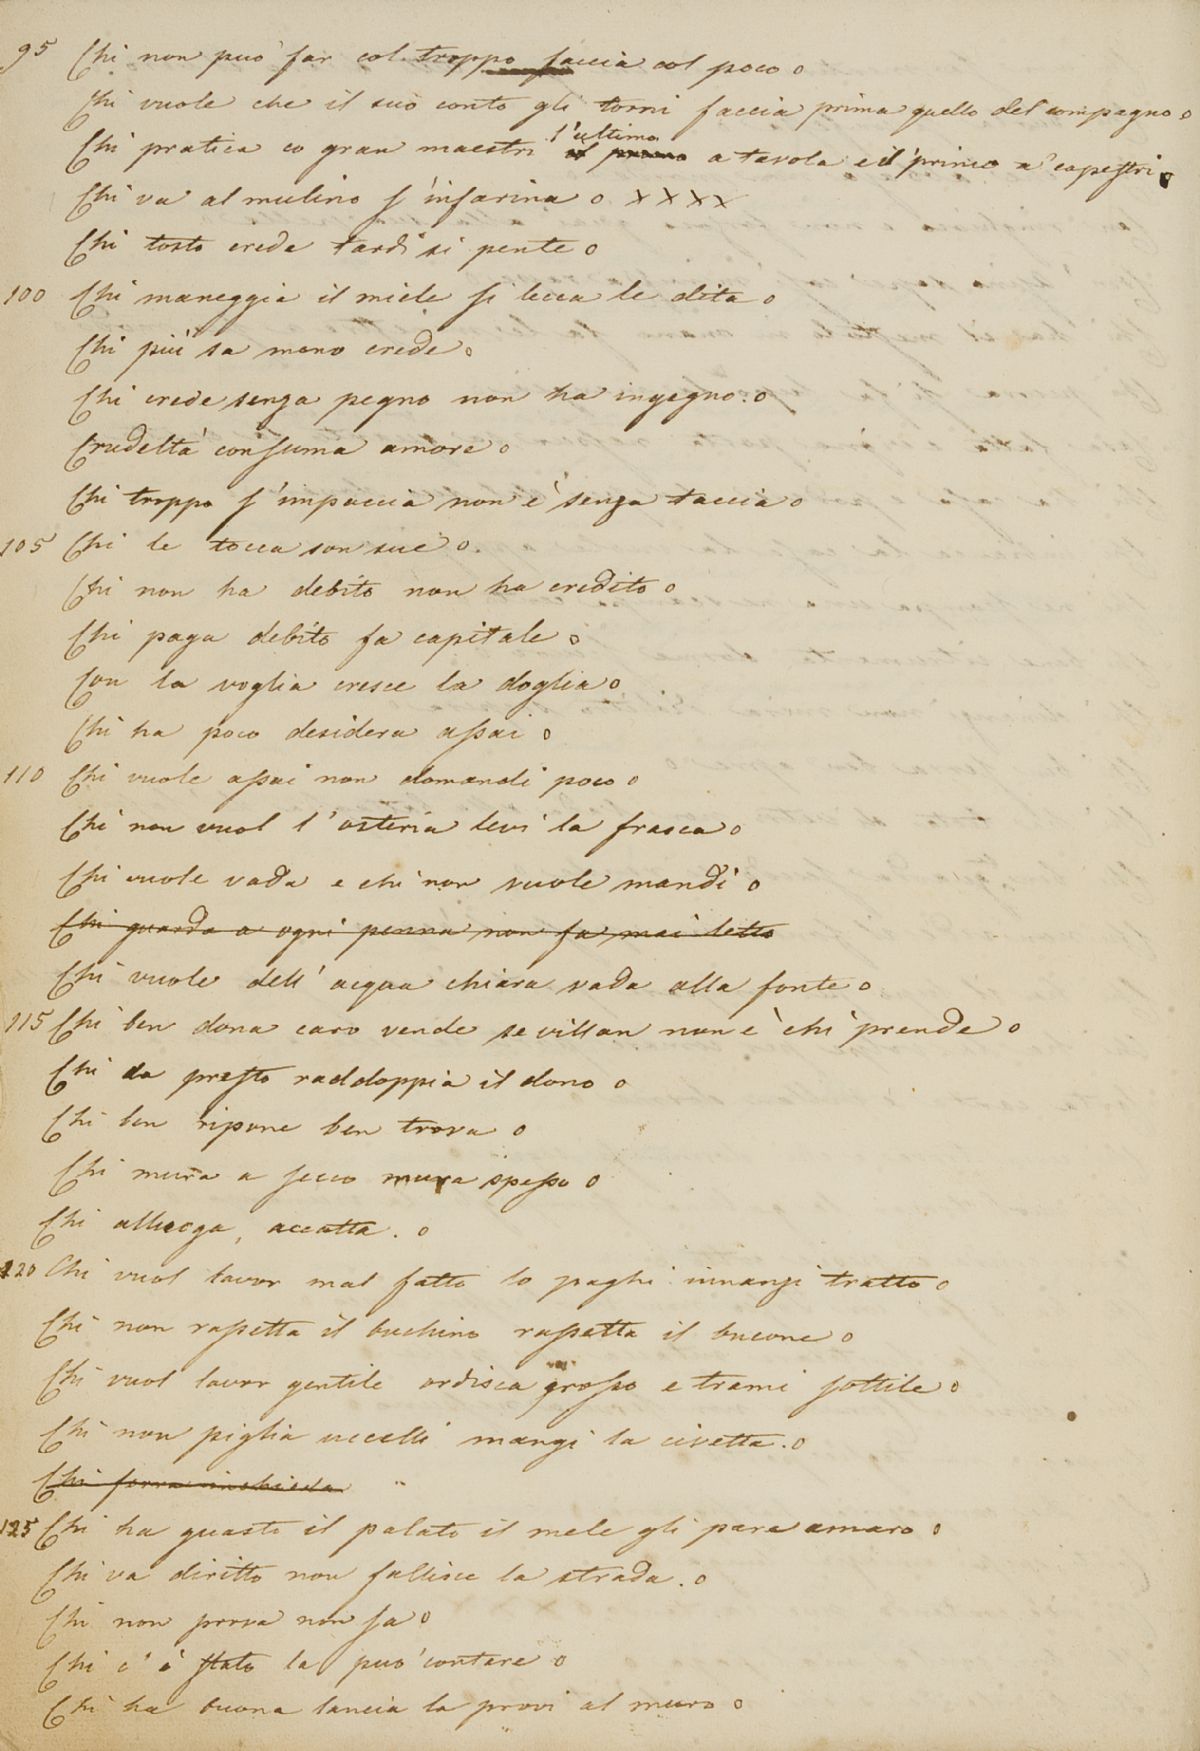 95 Chi non può far col troppo faccia col poco o
Chi vuole che il suo conto gli torni faccia prima quello del compagno o
l'ultimo
Chi pratica co gran maestri il primo a tavola e il primo a' capestri o
Chi va al mulino s'infarina o x x x x
Chi tosto crede tardi si pente o
100 Chi maneggia il miele si lecca le dita o
Chi più sa meno crede o
Chi crede senza pegno non ha ingegno. o
Crudeltà consuma amore o
Chi troppo s'impaccia non è senza taccia o
105 Chi le tocca son sue o.
Chi non ha debito non ha credito o
Chi paga debito fa capitale o
Con la voglia cresce la doglia o
Chi ha poco desidera assai o
110 Chi vuole assai non domandi poco o
Chi non vuol l'osteria levi la frasca o
Chi vuole vada e chi non vuole mandi o
Chi guarda a ogni penna non fa mai letto
Chi vuole dell'acqua chiara vada alla fonte o
115 Chi ben dona caro vende se villan non è chi prende o
Chi da presto raddoppia il dono o
Chi ben ripone ben trova o
Chi mura a secco mura spesso o
Chi alluoga, accatta. o
120 Chi vuol lavor mal fatto lo paghi innanzi tratto o
Chi non rassetta il buchino rassetta il bucone o
Chi vuol lavor gentile ordisca grosso e trami sottile o
Chi non piglia uccelli mangi la civetta. o
Chi ferra inchioda
125 Chi ha guasto il palato il mele gli pare amaro o
Chi va diritto non fallisce la strada. o
Chi non prova non sa o
Chi c'è stato la può contare o
Chi ha buona lancia la provi al muro o